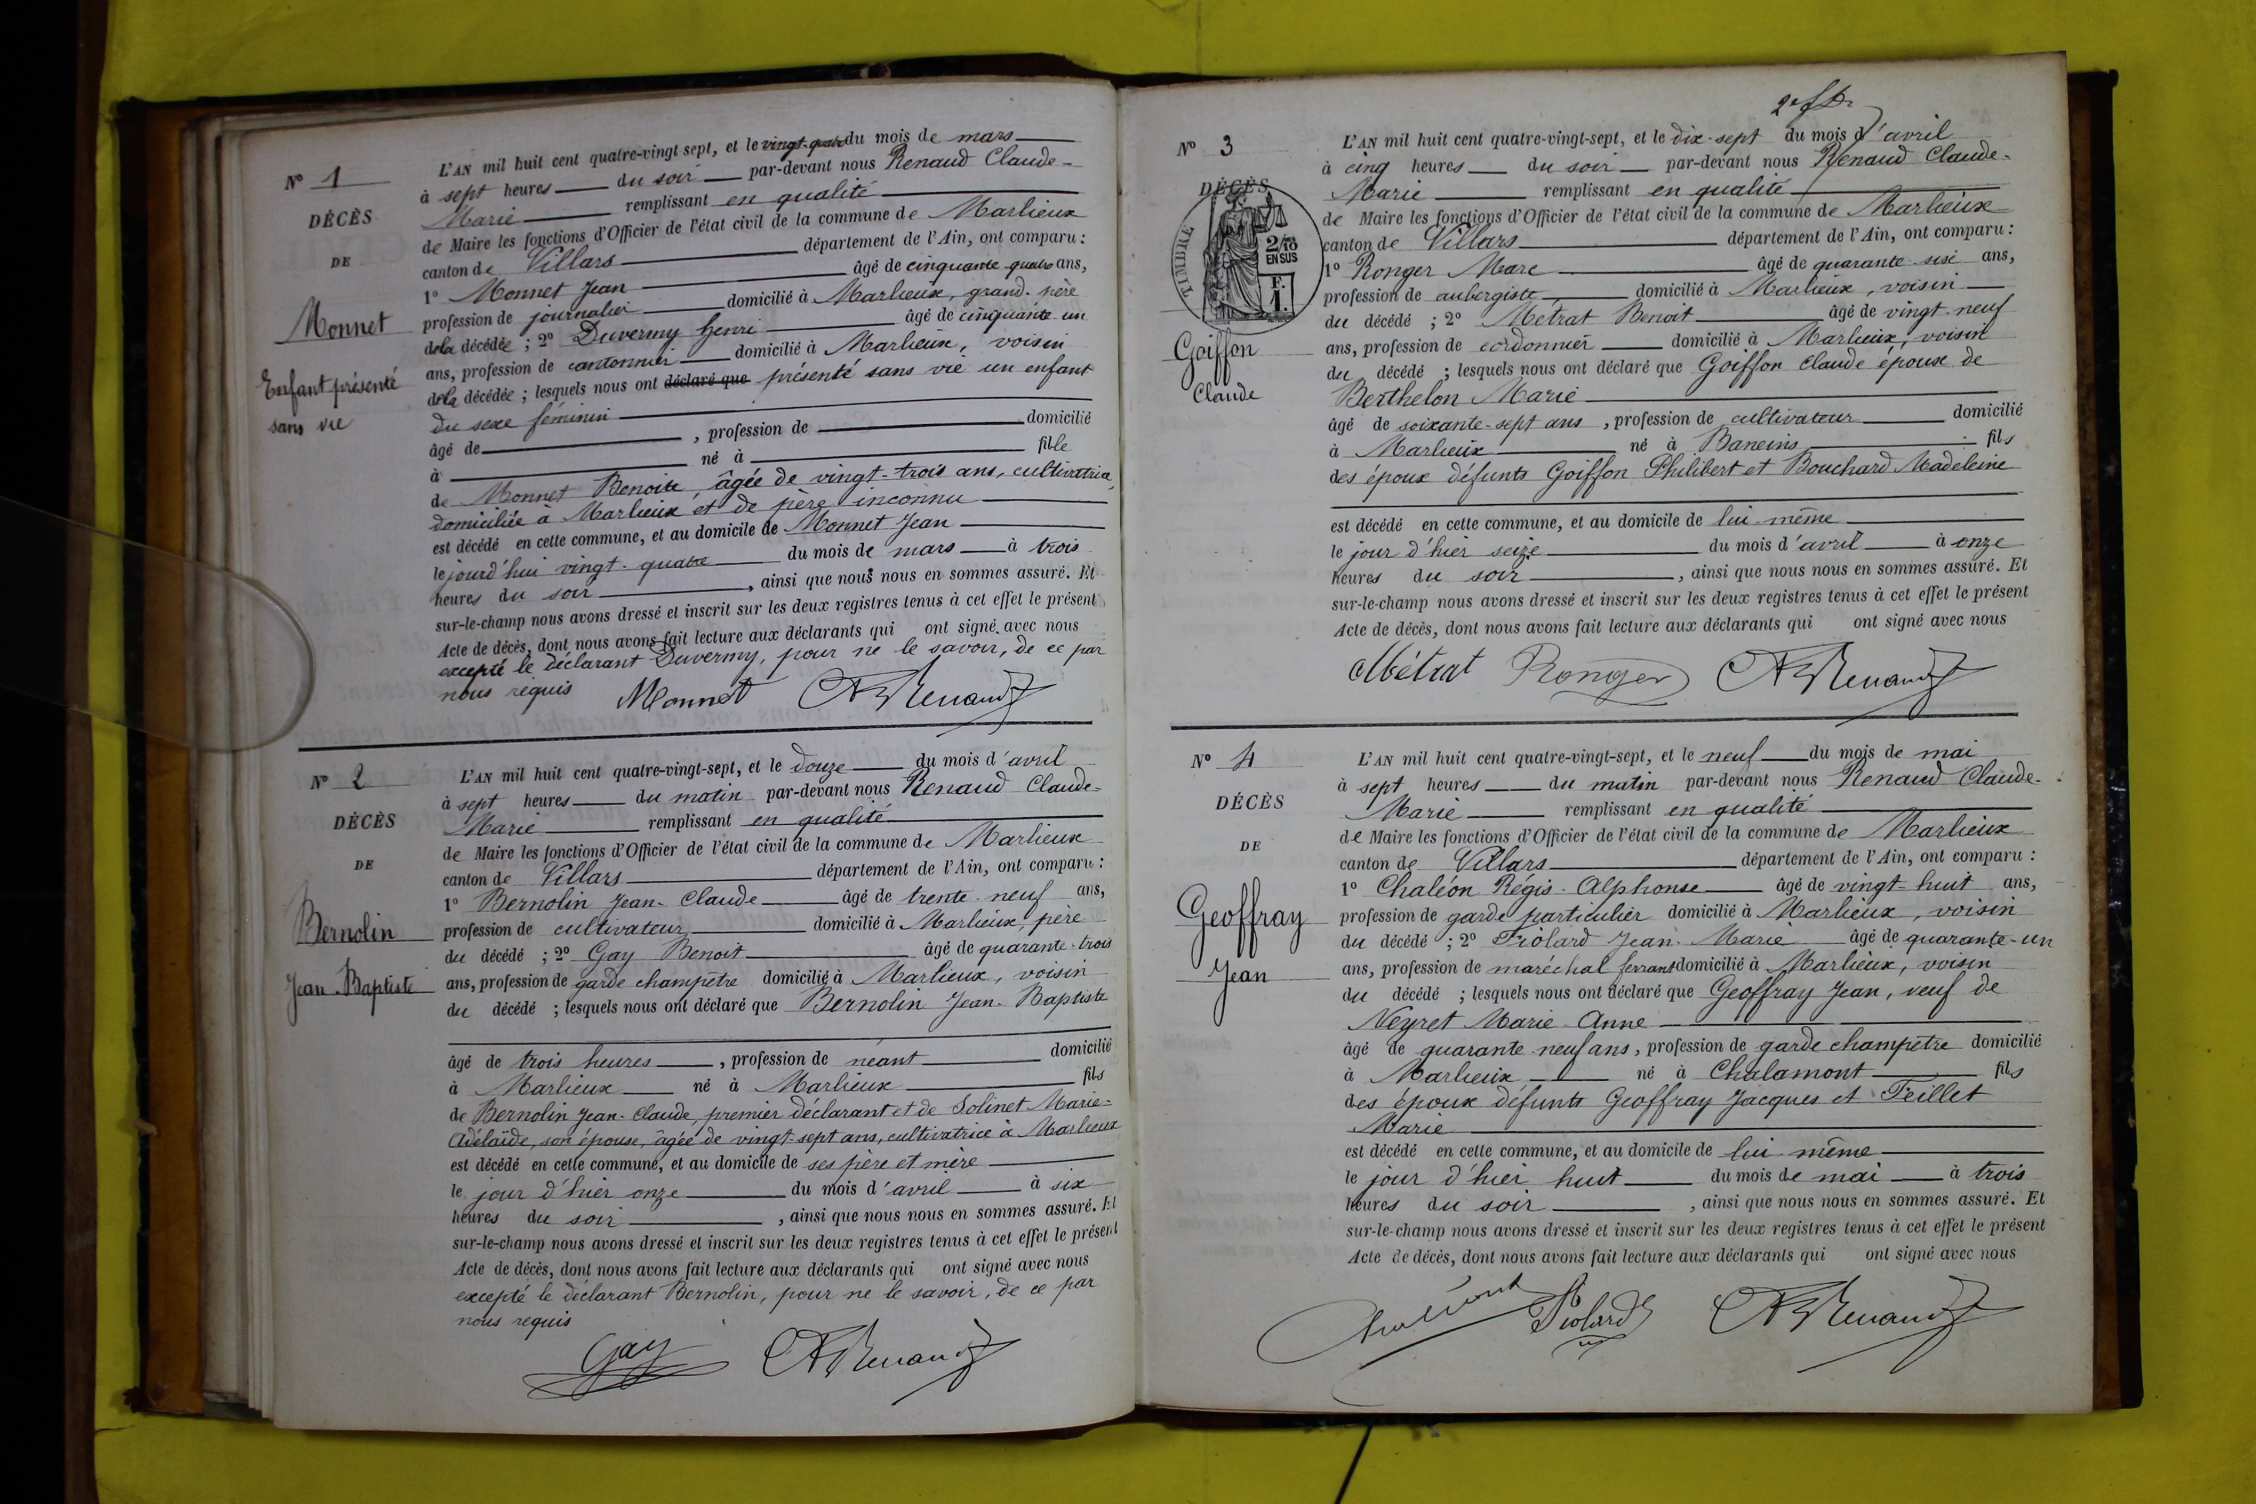 N° 1
DÉCÈS
DE
Monnet
Enfant présenté
sans vie
L'AN mil huit cent quatre-vingt sept, et le vingt-quatre du mois de mars
à sept heures du soir par-devant nous Renaud Claude-
Marie remplissant en qualité
de Maire les fonctions d'Officier de l'état civil de la commune de Marlieux
canton de Villars département de l'Ain, ont comparu :
1° Monnet Jean âgé de cinquante quatre ans,
profession de journalier domicilié à Marlieux, grand-père
de la décédée ; 2° Duvermy Henri âgé de cinquante un
ans, profession de cantonnier domicilié à Marlieux, voisin
de la décédée ; lesquels nous ont déclaré que présenté sans vie un enfant
du sexe féminin
âgé de , profession de domicilié
à né à fille
de Monnet Benoite, âgée de vingt-trois ans, cultivatrice,
domiciliée à Marlieux et de père inconnu
est décédé en cette commune, et au domicile de Monnet Jean
le jourd'hui vingt-quatre du mois de mars à trois
heures du soir , ainsi que nous nous en sommes assuré. Et
sur-le-champ nous avons dressé et inscrit sur les deux registres tenus à cet effet le présent
Acte de décès, dont nous avons fait lecture aux déclarants qui ont signé avec nous
excepté le déclarant Duvermy, pour ne le savoir, de ce par
nous requis Monnet CM Renaud
N° 2
DÉCÈS
DE
Bernolin
Jean-Baptiste
L'AN mil huit cent quatre-vingt-sept, et le douze du mois d'avril
à sept heures du matin par-devant nous Renaud Claude-
Marie remplissant en qualité
de Maire les fonctions d'Officier de l'état civil de la commune de Marlieux
canton de Villars département de l'Ain, ont comparu :
1° Bernolin Jean-Claude âgé de trente-neuf ans,
profession de cultivateur domicilié à Marlieux, père
du décédé ; 2° Gay Benoit âgé de quarante-trois
ans, profession de garde champêtre domicilié à Marlieux, voisin
du décédé ; lesquels nous ont déclaré que Bernolin Jean-Baptiste
âgé de trois heures , profession de néant domicilié
à Marlieux né à Marlieux fils
de Bernolin Jean-Claude, premier déclarant et de Solinet Marie-
Adélaïde, son épouse, âgée de vingt-sept ans, cultivatrice à Marlieux
est décédé en cette commune, et au domicile de ses père et mère
le jour d'hier onze du mois d'avril à six
heures du soir , ainsi que nous nous en sommes assuré. Et
sur-le-champ nous avons dressé et inscrit sur les deux registres tenus à cet effet le présent
Acte de décès, dont nous avons fait lecture aux déclarants qui ont signé avec nous
excepté le déclarant Bernolin, pour ne le savoir, de ce par
nous requis
Gay CM Renaud
N° 3
DÉCÈS
TIMBRE
2/10
EN SUS
F.
1.
Goiffon
Claude
L'AN mil huit cent quatre-vingt-sept, et le dix-sept du mois d'avril
à cinq heures du soir par-devant nous Renaud Claude-
Marie remplissant en qualité
de Maire les fonctions d'Officier de l'état civil de la commune de Marlieux
canton de Villars département de l'Ain, ont comparu :
1° Ronger Marc âgé de quarante-six ans,
profession de aubergiste domicilié à Marlieux, voisin
du décédé ; 2° Métrat Benoit âgé de vingt-neuf
ans, profession de cordonnier domicilié à Marlieux, voisin
du décédé ; lesquels nous ont déclaré que Goiffon Claude époux de
Berthelon Marie
âgé de soixante-sept ans , profession de cultivateur domicilié
à Marlieux né à Baneins fils
des époux défunts Goiffon Philibert et Bouchard Madeleine
est décédé en cette commune, et au domicile de lui-même
le jour d'hier seize du mois d'avril à onze
heures du soir , ainsi que nous nous en sommes assuré. Et
sur-le-champ nous avons dressé et inscrit sur les deux registres tenus à cet effet le présent
Acte de décès, dont nous avons fait lecture aux déclarants qui ont signé avec nous
Métrat Ronger CM Renaud
N° 4
DÉCÈS
DE
Geoffray
Jean
L'AN mil huit cent quatre-vingt-sept, et le neuf du mois de mai
à sept heures du matin par-devant nous Renaud Claude-
Marie remplissant en qualité
de Maire les fonctions d'Officier de l'état civil de la commune de Marlieux
canton de Villars département de l'Ain, ont comparu :
1° Chaléon Régis-Alphonse âgé de vingt-huit ans,
profession de garde particulier domicilié à Marlieux, voisin
du décédé ; 2° Piolard Jean-Marie âgé de quarante-un
ans, profession de maréchal ferrant domicilié à Marlieux, voisin
du décédé ; lesquels nous ont déclaré que Geoffray Jean, veuf de
Neyret Marie-Anne
âgé de quarante-neuf ans, profession de garde champêtre domicilié
à Marlieux né à Chalamont fils
des époux défunts Geoffray Jacques et Feillet
Marie
est décédé en cette commune, et au domicile de lui même
le jour d'hier huit du mois de mai à trois
heures du soir , ainsi que nous nous en sommes assuré. Et
sur-le-champ nous avons dressé et inscrit sur les deux registres tenus à cet effet le présent
Acte de décès, dont nous avons fait lecture aux déclarants qui ont signé avec nous
Piolard CM Renaud